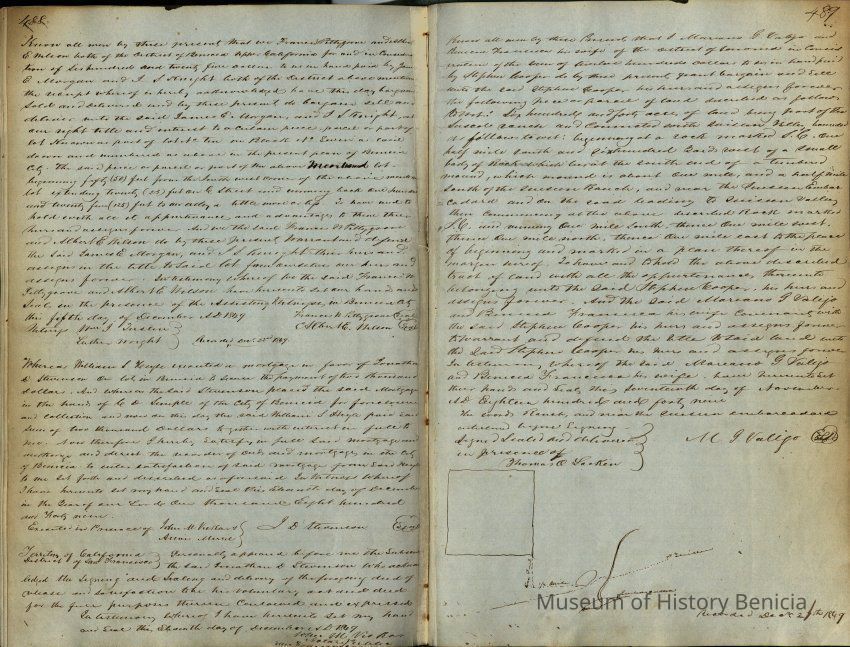 488
Know all men by these present that we Francis Pettygrove and Albert
E Wilson both of the District of Benicia Upper California for and in Consider
ation of Six hundred and twenty five dollars to us in hand paid by James
E Morgan and J S Knight both of the District above mentioned
the receipt whereof is hereby acknowledged have this day bargained
Sold and delivered and by these present do bargain sell and
deliver unto the said James E Morgan, and J S Knight, all
our right title and interest to a certain piece parcel or part of
lot Known as part of lot No ten in Block No
down and numbered as above in the present plan of Benicia
City. The said piece or parcel or part of the above Mentioned lot
beginning fifty (50) feet from the South west corner of the
lot extending twenty (25) feet on E Street and running back One hundred
and twenty five (125) feet to an alley, a little more or less To have and to
hold with all it appurtenances and advantages to them their
heirs and assigns forever. And we the said Francis W Pettygrove
and Albert E Wilson do by these present Warrant and defend
the said James E Morgan, and J S Knight their heirs and
assigns in the title to said lot
assigns forever. In testimony whereof we the said Francis W
Pettygrove and Albert E Wilson have hereunto set our hand and
Seal in the presence of the Assisting Witnesses, in Benicia City
the fifth day of December AD 1849
Francis W Pettygrove Seal
Witness Wm J Tustin
Albert E. Wilson Seal
Luther Wright
Recorded 1849
Whereas William S Hyde executed a mortgage in favor of Jonathan
D Stevenson on lot in Benicia to secure the payment of two thousand
dollars. And whereas the said Stevenson placed the said Mortgage
in the hands of C D Semple of the City of Benicia for foreclosure
and collection and now on this day the said William S Hyde paid said
Sum of two thousand Dollars together with interest in full to
me. Now therefore I hereby Satisfy in full Said mortgage and
discharge and direct the recorder of deeds and mortgages in the city
of Benicia to enter satisfaction of said mortgage from said Hyde
to me set forth and described as aforesaid In Witness Whereof
I have hereunto set my hand and Seal this Eleventh day of December
in the Year of our Lord One thousand Eight hundred
and Forty nine
Executed in Presence of John M Vickar
J D Stevenson Seal
Territory of California
District of San Francisco
Personally appeared before me the Subscriber
the said Jonathan D Stevenson who acknow
ledged the Signing and Sealing and delivery of the foregoing deed of
release and satisfaction to be his voluntary act and deed
for the purposes therein Contained and expressed
In testimony whereof I have hereunto Set my hand
and Seal the Eleventh day of December AD 1849
John M Vickar
489
Know all men by these Present that I Mariano G Valejo and
Benicia Francisca his wife of the district of Sonoma in Consid
eration of the Sum of twelve hundred dollars to us in hand paid
by Stephen Cooper do by these present, grant bargain and Sell
unto the said Stephen Cooper his heirs and assigns forever
the following piece or parcel of land described as follows,
Six hundred and forty acres of land being part of the
Suscol ranch and Connected with Suisun Valley, bounded
as follows to wit: beginning at a rock marked S. C. One
half mile South and Six hundred Yard west of a Small
body of Rock which lies at the South end of a timbered
mound, which mound is about One mile, and a half mile
South of the Suisun Ranch, and near the Suisun Embar
cadard and on the road leading to Suisun Valley,
then Commencing at the above described Rock marked
S. C. and running One mile South. thence One mile west.
thence One mile north, thence One mile east to the place
of beginning and marked in a plane thereof in the
tract of land with all the appurtenances, thereunto
belonging unto the said Stephen Cooper, his heirs and
assigns forever. And the Said Mariano G Valejo
and Benicia Francisca his wife Covenant with
the said Stephen Cooper his heirs and assigns forever
to warrant and defend the title to said land with
the Said Stephen Cooper his heirs and assigns forever
In testimony, whereof the said Mariano G Valejo
and Benicia Francisca his wife have hereunto Set
their hands and Seal this Seventeenth day of November
AD Eighteen hundred and forty nine
The words Ranch, and near the Suisun embarcadard
interlined before Signing
Signed Sealed and delivered
in presence of
M. G Valejo Seal
Thomas O Larkin
Recorded Dec 29th 1849
Museum of History Benicia